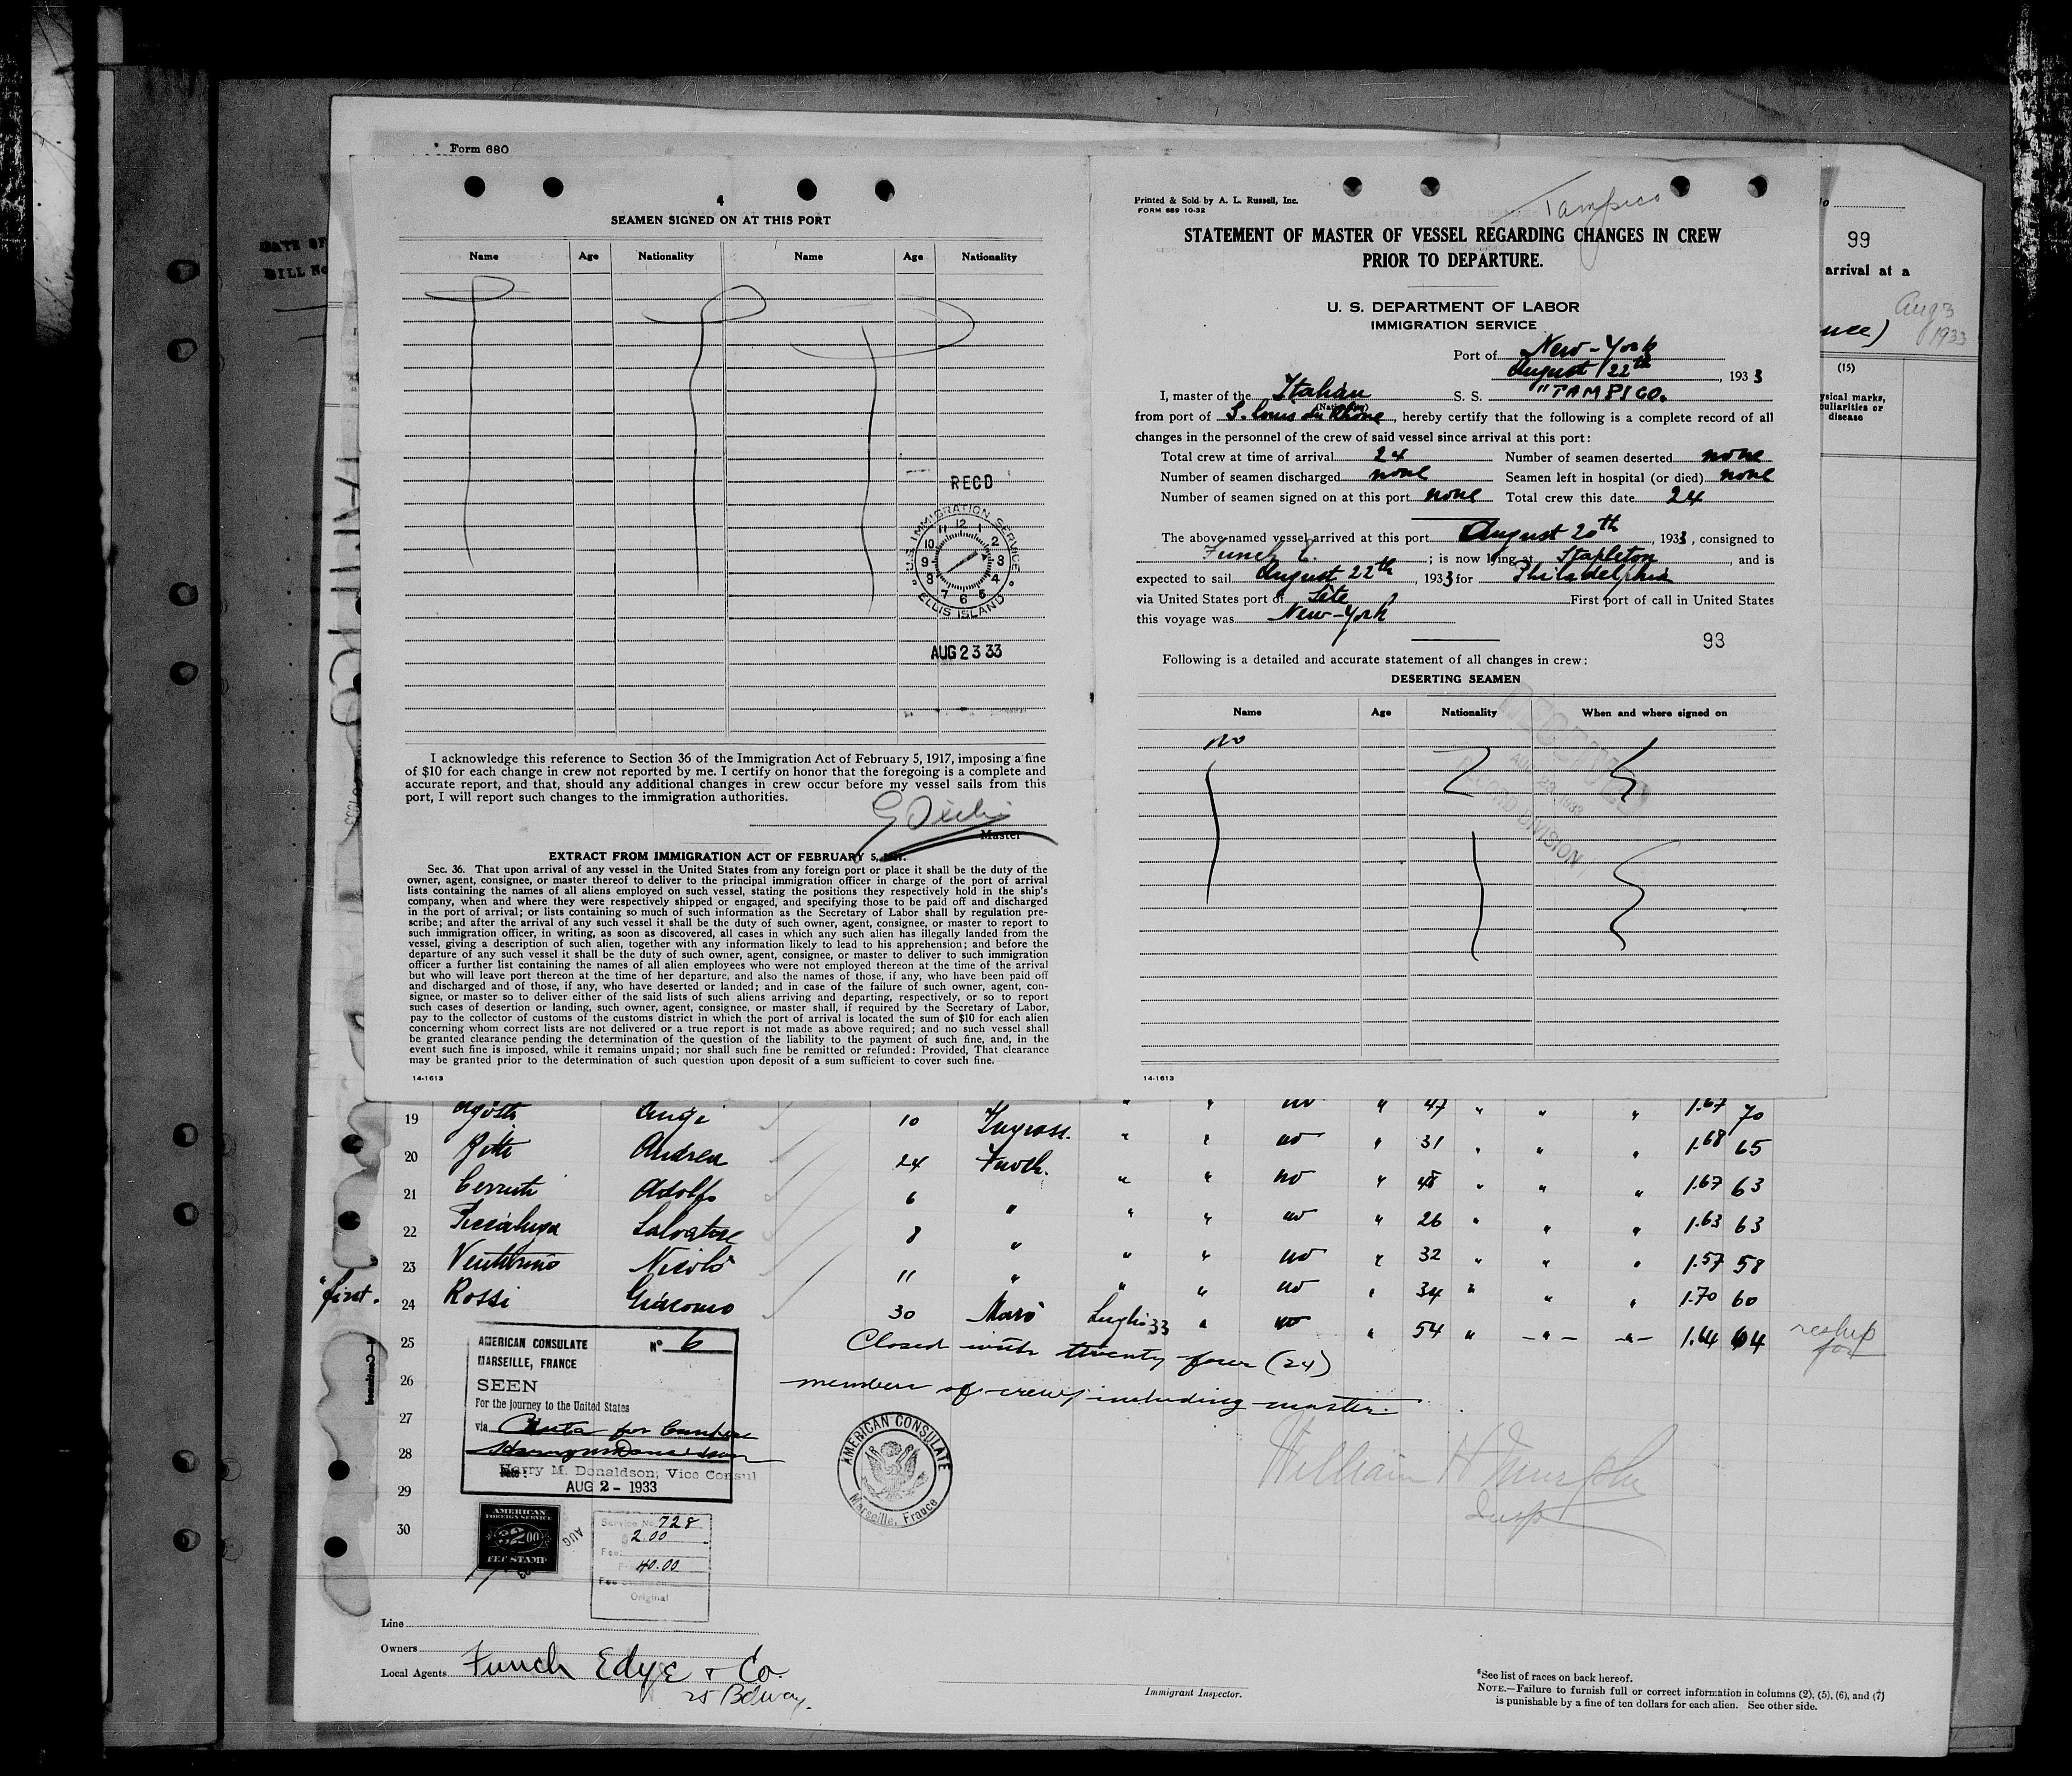 Form 680
4
SEAMEN SIGNED ON AT THIS PORT
Name Age Nationality Name Age Nationality
RECD
U.S. IMMIGRATION SERVICE
12 1 2 3 4 5 6 7 8 9 10 11
ELLIS ISLAND
AUG 23 33
I acknowledge this reference to Section 36 of the Immigration Act of February 5, 1917, imposing a fine
of $10 for each change in crew not reported by me. I certify on honor that the foregoing is a complete and
accurate report, and that, should any additional changes in crew occur before my vessel sails from this
port, I will report such changes to the immigration authorities.
Master
EXTRACT FROM IMMIGRATION ACT OF FEBRUARY 5, 1917.
Sec. 36. That upon arrival of any vessel in the United States from any foreign port or place it shall be the duty of the
owner, agent, consignee, or master thereof to deliver to the principal immigration officer in charge of the port of arrival
lists containing the names of all aliens employed on such vessel, stating the positions they respectively hold in the ship's
company, when and where they were respectively shipped or engaged, and specifying those to be paid off and discharged
in the port of arrival; or lists containing so much of such information as the Secretary of Labor shall by regulation pre-
scribe; and after the arrival of any such vessel it shall be the duty of such owner, agent, consignee, or master to report to
such immigration officer, in writing, as soon as discovered, all cases in which any such alien has illegally landed from the
vessel, giving a description of such alien, together with any information likely to lead to his apprehension; and before the
departure of any such vessel it shall be the duty of such owner, agent, consignee, or master to deliver to such immigration
officer a further list containing the names of all alien employees who were not employed thereon at the time of the arrival
but who will leave port thereon at the time of her departure, and also the names of those, if any, who have been paid off
and discharged and of those, if any, who have deserted or landed; and in case of the failure of such owner, agent, con-
signee, or master so to deliver either of the said lists of such aliens arriving and departing, respectively, or so to report
such cases of desertion or landing, such owner, agent, consignee, or master shall, if required by the Secretary of Labor,
pay to the collector of customs of the customs district in which the port of arrival is located the sum of $10 for each alien
concerning whom correct lists are not delivered or a true report is not made as above required; and no such vessel shall
be granted clearance pending the determination of the question of the liability to the payment of such fine, and, in the
event such fine is imposed, while it remains unpaid; nor shall such fine be remitted or refunded: Provided, That clearance
may be granted prior to the determination of such question upon deposit of a sum sufficient to cover such fine.
14-1613
Printed & Sold by A. L. Russell, Inc.
FORM 689 10-32
Tampico
STATEMENT OF MASTER OF VESSEL REGARDING CHANGES IN CREW
PRIOR TO DEPARTURE.
U. S. DEPARTMENT OF LABOR
IMMIGRATION SERVICE
Port of New-York
August 22th, 1933
I, master of the Italian S. S. "TAMPICO.
(Nationality)
from port of S. Louis du Rhone, hereby certify that the following is a complete record of all
changes in the personnel of the crew of said vessel since arrival at this port:
Total crew at time of arrival 24 Number of seamen deserted none
Number of seamen discharged none Seamen left in hospital (or died) none
Number of seamen signed on at this port none Total crew this date 24
The above-named vessel arrived at this port August 20th, 1933, consigned to
Funch E.; is now lying at Stapleton, and is
expected to sail August 22th, 1933 for Philadelphia
via United States port of First port of call in United States
this voyage was New-York
93
Following is a detailed and accurate statement of all changes in crew:
DESERTING SEAMEN
Name Age Nationality When and where signed on
no
RECEIVED
AUG 23 1933
RECORD DIVISION
14-1613
99
arrival at a
Aug 3
1933
(15)
ysical marks,
culiarities or
disease
DATE OF
BILL No
TAMPICO
19 Agosti Luigi 10 Ingrass. " " no " 47 " " " 1.67 70
20 Andrea 24 Fuoch. " " no " 31 " " " 1.68 65
21 Cerruti Adolfo 6 " " " no " 48 " " " 1.67 63
22 Piccaluga Salvatore 8 " " " no " 26 " " " 1.63 63
23 Venturino Nicolò 11 " " " no " 32 " " " 1.57 58
"first. 24 Rossi Giacomo 30 Luglio 33 " no " 54 " " " 1.64 64
34 1.70 60
reship
for
25 Closed with twenty four (24)
26 members of crew, including master.
27
28
29
30
AMERICAN CONSULATE No 6
MARSEILLE, FRANCE
SEEN
For the journey to the United States
via
Harry M. Donaldson, Vice Consul
Date: AUG 2 - 1933
AMERICAN CONSULATE
Marseille, France
William H Murphy
Insp
AMERICAN
FOREIGN SERVICE
$2.00
FEE STAMP
AUG
Service No. 728
2.00
Fee:
40.00
Original
Line
Owners
Local Agents Funch Edye & Co.
25 Bdway.
Immigrant Inspector.
See list of races on back hereof.
NOTE.—Failure to furnish full or correct information in columns (2), (5), (6), and (7)
is punishable by a fine of ten dollars for each alien. See other side.